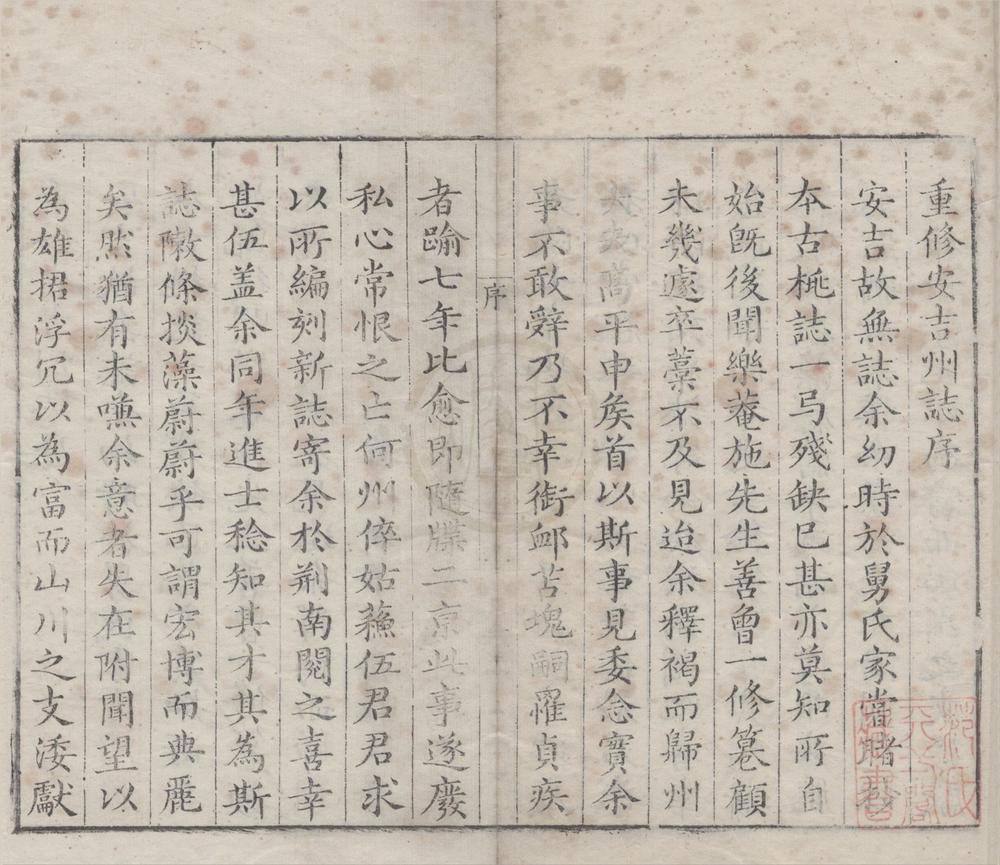 重修安吉州誌序
安吉故無誌余幼時於舅氏家嘗睹
本古桃誌一弓殘缺已甚亦莫知所自
始既後聞樂菴施先生善曾一修篹顧
未幾遽卒藁不及見迨余釋褐而歸州
高平申矦首以斯事見委念實余
事不敢辤乃不幸銜衂苫塊嗣罹貞疾
序
者踰七年比愈即隨牒二京此事遂廢
私心常恨之亡何州倅姑蘓伍君君求
以所編刻新誌寄余於荆南閱之喜幸
甚伍盖余同年進士稔知其才其為斯
誌敶條掞藻蔚蔚乎可謂宏博而典麗
矣然猶有未嗛余意者失在附聞望以
為雄捃浮冗以為富而山川之支逶獻